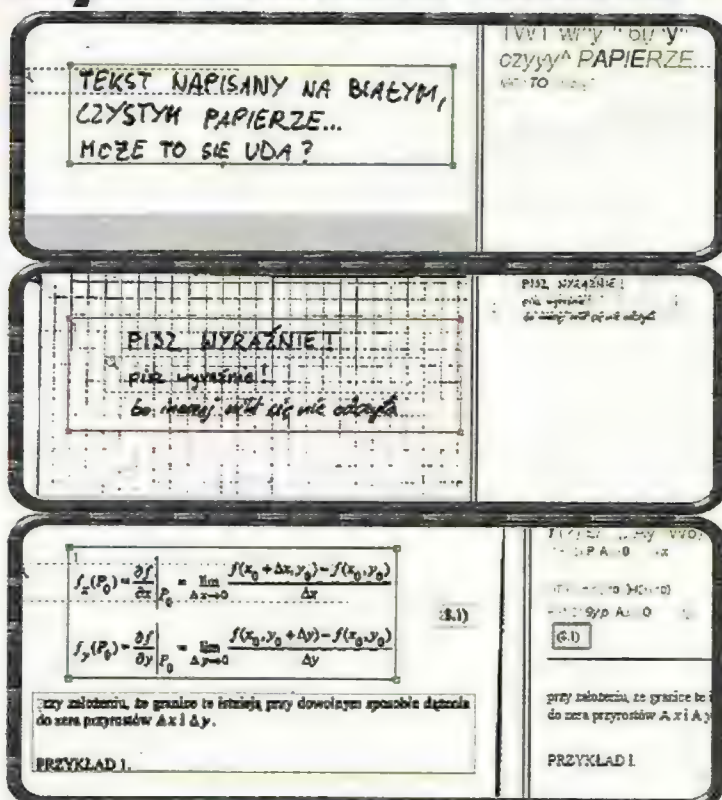 TEKST NAPISANY NA BIAŁYM,
CZYSTYM PAPIERZE...
MOŻE TO SIĘ UDA?
czyyy^ PAPIERZE...
TO
PISZ WYRAŹNIE!
pisz wyraźnie!
bo inaczej nikt się nie odczyta
PISZ WYRAŹNIE!
pisz wyraźnie!
f_x(P_0) = ∂f/∂x |P_0 = lim Δx→0 f(x_0 + Δx, y_0) − f(x_0, y_0) / Δx
(8.1)
f_y(P_0) = ∂f/∂y |P_0 = lim Δy→0 f(x_0, y_0 + Δy) − f(x_0, y_0) / Δy
przy założeniu, że granice te istnieją przy dowolnym sposobie dążenia
do zera przyrostów Δx i Δy.
PRZYKŁAD 1.
(8.1)
przy założeniu, że granice te i
do zera przyrostów Δ x i Δ y
PRZYKŁAD 1.